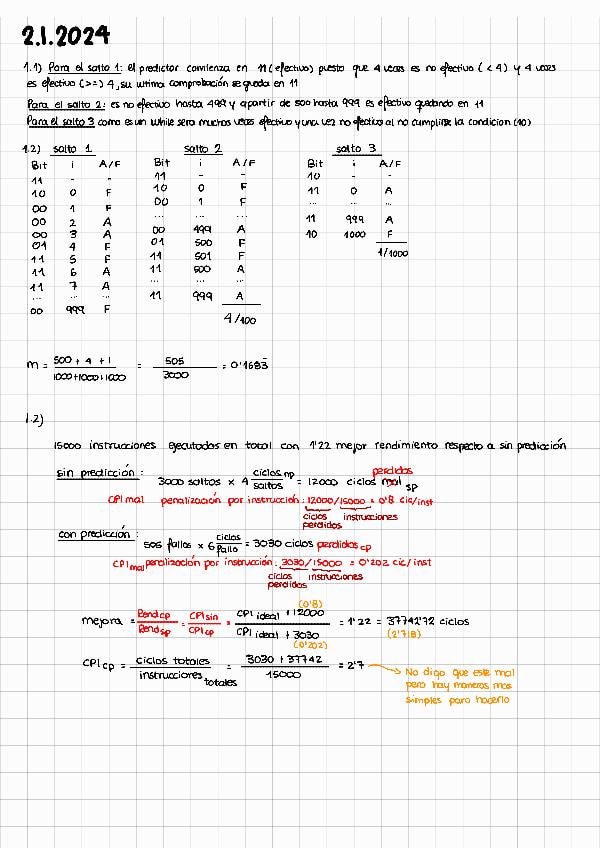 2.1.2024
1.1) Para el salto 1: el predictor comienza en 11 (efectivo) puesto que 4 veces es no efectivo (< 4) y 4 veces
es efectivo (>=) 4, su ultima comprobación se queda en 11
Para el salto 2: es no efectivo hasta 499 y apartir de 500 hasta 999 es efectivo quedando en 11
Para el salto 3 como es un while sera muchas veces efectivo y una vez no efectivo al no cumplirse la condicion (10)
1.2) salto 1 salto 2 salto 3
Bit i A/F Bit i A/F Bit i A/F
11 - - 11 - - 10 - -
10 0 F 10 0 F 11 0 A
00 1 F 00 1 F ... ... ...
00 2 A ... ... ... 11 999 A
00 3 A 00 499 A 10 1000 F
01 4 F 01 500 F 1/1000
11 5 F 11 501 F
11 6 A 11 500 A
11 7 A ... ... ...
... ... ... 11 999 A
00 999 F 4/100
m = 500 + 4 + 1 / 1000+1000+1000 = 505 / 3000 = 0'1683
1.2)
15000 instrucciones ejecutadas en total con 1'22 mejor rendimiento respecto a sin predicción
sin predicción: 3000 saltos x 4 ciclos np / saltos = 12000 ciclos mal sp perdidos
CPI mal penalización por instrucción: 12000/15000 = 0'8 cic/inst
ciclos perdidos instrucciones
con predicción: 505 fallos x 6 ciclos / fallo = 3030 ciclos perdidos cp
CPI mal penalización por instrucción: 3030/15000 = 0'202 cic/inst
ciclos perdidos instrucciones
(0'8)
mejora = Rend cp / Rend sp = CPI sin / CPI cp = CPI ideal + 12000 / CPI ideal + 3030 = 1'22 = 37742'72 ciclos
(0'202) (2'718)
CPI cp = ciclos totales / instrucciones totales = 3030 + 37742 / 15000 = 2'7
No digo que este mal
pero hay maneras mas
simples para hacerlo